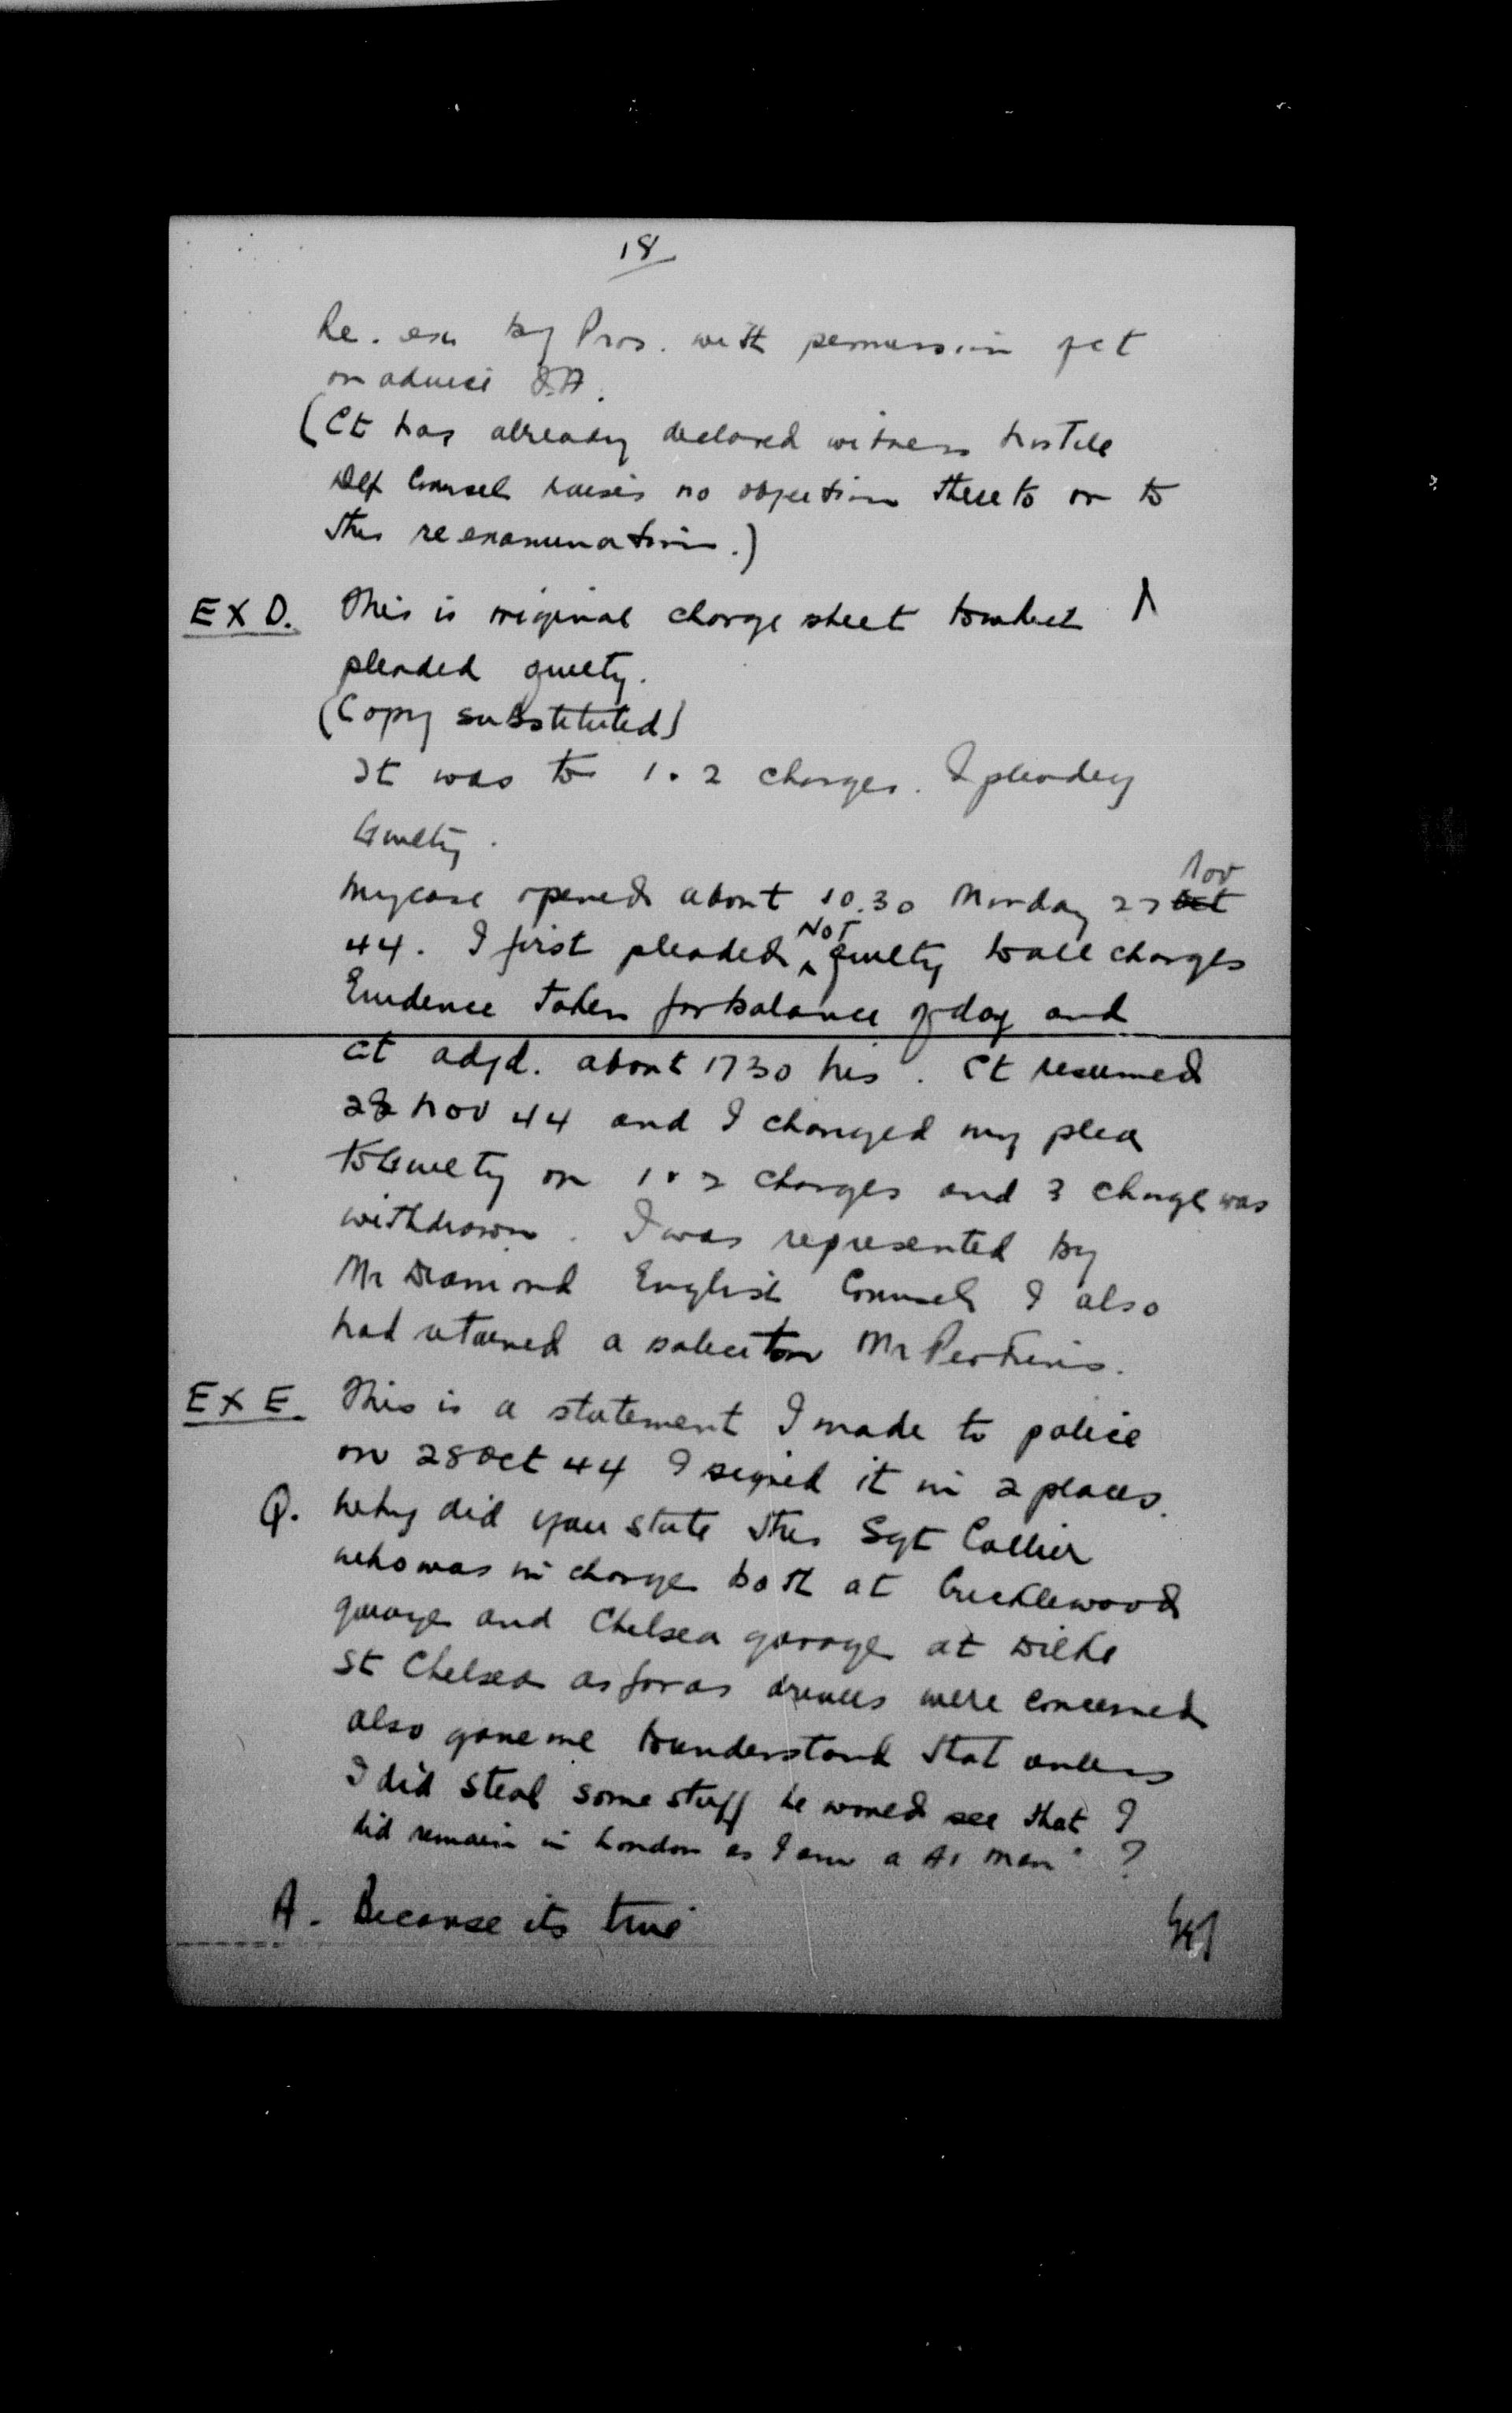 18
Re. ex by Pros. with permission of ct
on advice J.A.
(Ct has already declared witness hostile
Def Counsel raises no objection thereto or to
this reexamination.)
EX D. This is original charge sheet to which I
pleaded guilty.
(Copy substituted)
It was to 1 & 2 charges. I pleaded
Guilty.
My case opened about 10.30 Monday 27 Oct Nov
44. I first pleaded NOT guilty to all charges
Evidence taken for balance of day and
ct adjd. about 1730 hrs. Ct resumed
28 Nov 44 and I changed my plea
to Guilty on 1 & 2 charges and 3 charge was
withdrawn. I was represented by
Mr Diamond English Counsel I also
had retained a solicitor Mr Perkins.
EX E. This is a statement I made to police
on 28 Oct 44 I signed it in 2 places.
Q. Why did you state this Sgt Collier
who was in charge both at Cricklewood
garage and Chelsea garage at Dilke
St Chelsea as far as drivers were concerned
also gave me to understand that unless
I did steal some stuff he would see that I
did remain in London as I am a A1 man" ?
A. Because its true